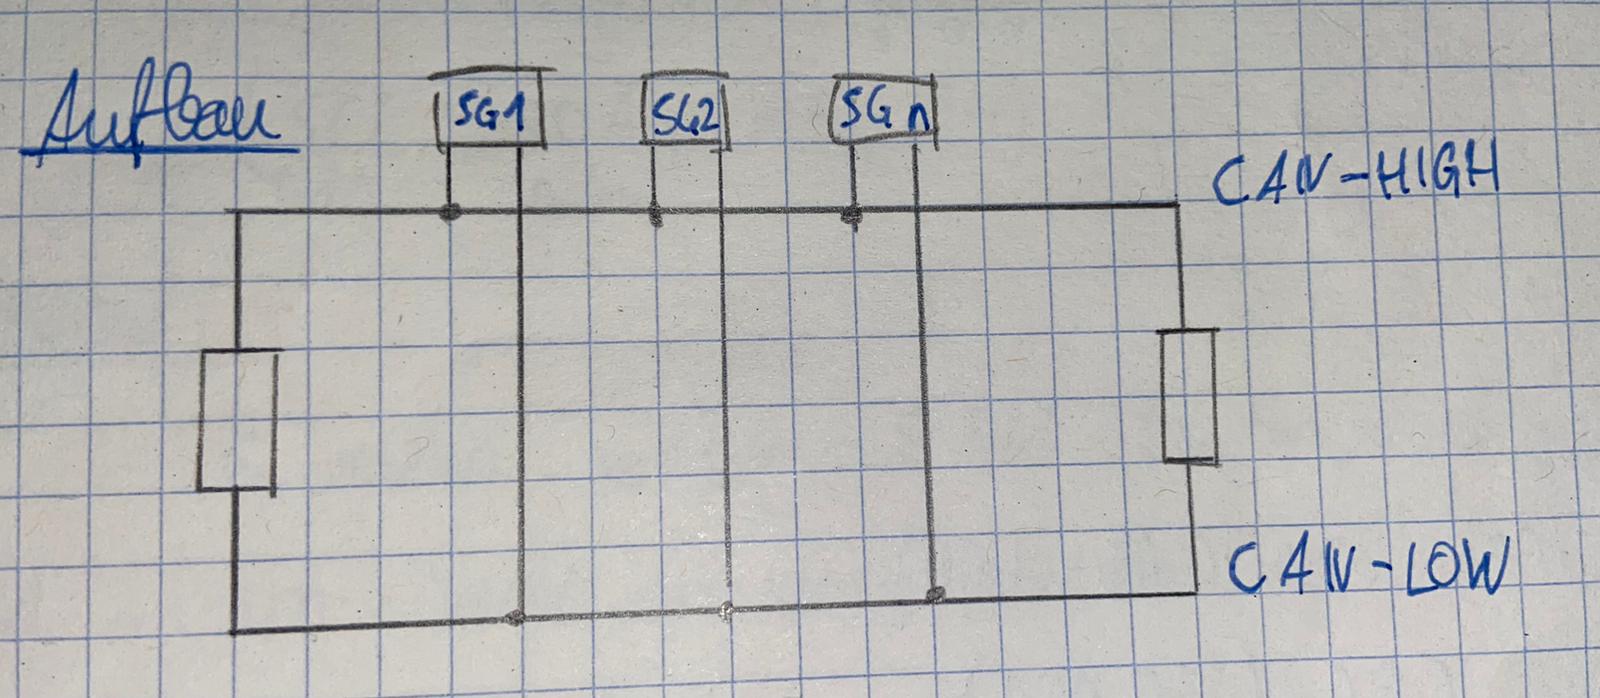 Aufbau
SG1
SG2
SG n
CAN-HIGH
CAN-LOW